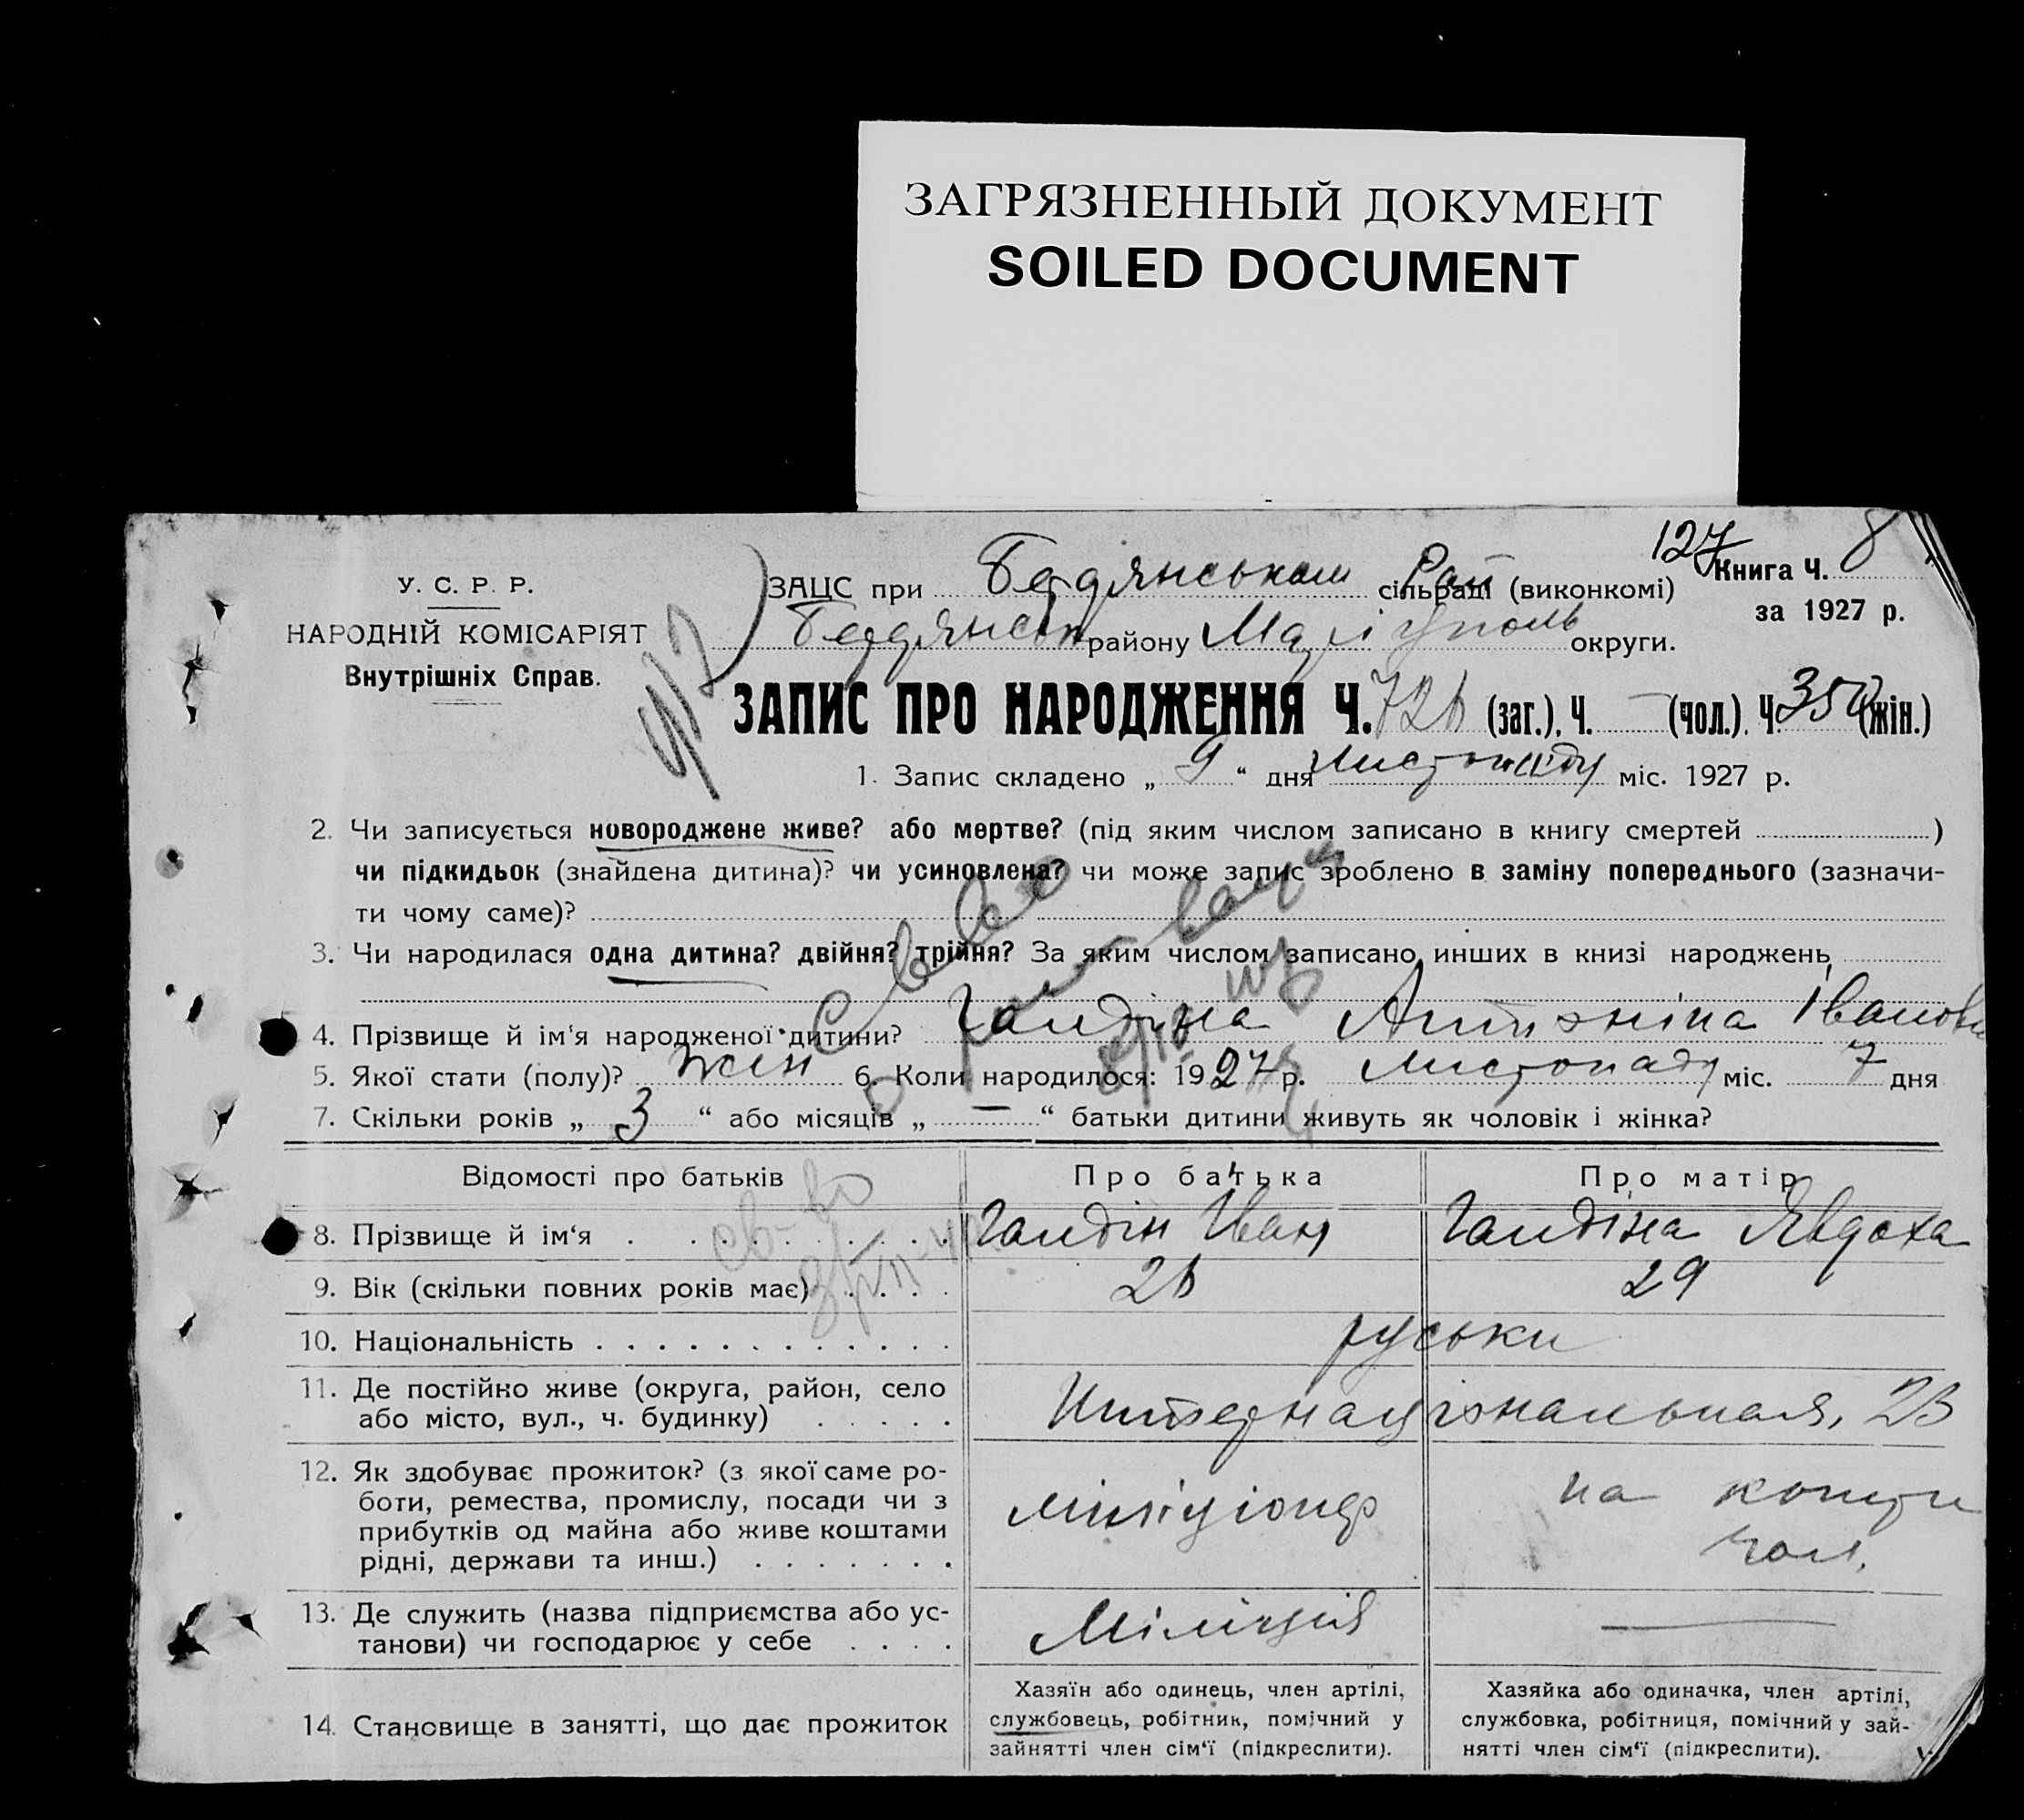 ЗАГРЯЗНЕННЫЙ ДОКУМЕНТ
SOILED DOCUMENT
127
У. С. Р. Р.
НАРОДНІЙ КОМІСАРІЯТ
Внутрішніх Справ.
ЗАЦС при Бердянськом Рай сільраді (виконкомі)
Книга Ч. 8
за 1927 р.
Бердянськ району Маріуполь округи.
ЗАПИС ПРО НАРОДЖЕННЯ Ч. 726 (заг.), Ч. — (чол.), Ч. 350 (жін.)
1. Запис складено „ 9 “ дня листопаду міс. 1927 р.
2. Чи записується новороджене живе? або мертве? (під яким числом записано в книгу смертей )
чи підкидьок (знайдена дитина)? чи усиновлена? чи може запис зроблено в заміну попереднього (зазначи-
ти чому саме)?
3. Чи народилася одна дитина? двійня? трійня? За яким числом записано инших в книзі народжень
4. Прізвище й ім‘я народженої дитини? Галдіна Антоніна Іванов
5. Якої стати (полу)? жін 6. Коли народилося: 1927 р. листопаду міс. 7 дня
7. Скільки років „ 3 “ або місяців „ — “ батьки дитини живуть як чоловік і жінка?
Відомості про батьків Про батька Про матір
8. Прізвище й ім‘я Галдін Іван Галдіна Явдоха
9. Вік (скільки повних років має) 26 29
10. Національність руськи
11. Де постійно живе (округа, район, село
або місто, вул., ч. будинку) Интернаціональная, 23
12. Як здобуває прожиток? (з якої саме ро-
боти, ремества, промислу, посади чи з
прибутків од майна або живе коштами
рідні, держави та инш.) міліціонер на кошти
чол.
13. Де служить (назва підприємства або ус-
танови) чи господарює у себе Міліція —
14. Становище в занятті, що дає прожиток
Хазяїн або одинець, член артілі,
службовець, робітник, помічний у
зайнятті член сім‘ї (підкреслити).
Хазяйка або одиначка, член артілі,
службовка, робітниця, помічний у зай-
нятті член сім‘ї (підкреслити).